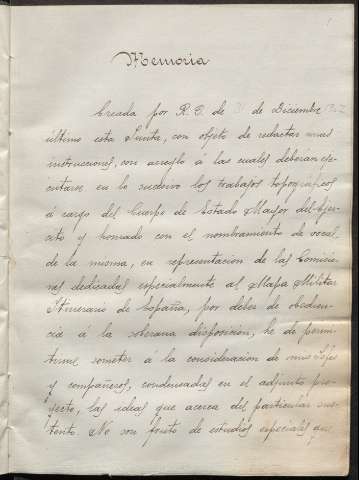 Memoria
Creada por R. O. de 31 de Diciembre
último esta Junta, con objeto de redactar unas
instrucciones, con arreglo á las cuales deberán eje-
cutarse en lo sucesivo los trabajos topográficos
á cargo del Cuerpo de Estado Mayor del Ejér-
cito y honrado con el nombramiento de vocal
de la misma, en representación de las Comisio-
nes dedicadas especialmente al Mapa Militar
Itinerario de España, por deber de obedien-
cia á la soberana disposición, he de permi-
tirme someter á la consideración de mis Jefes
y compañeros, condensadas en el adjunto pro-
yecto, las ideas que acerca del particular sus-
tento. No son fruto de estudios especiales que